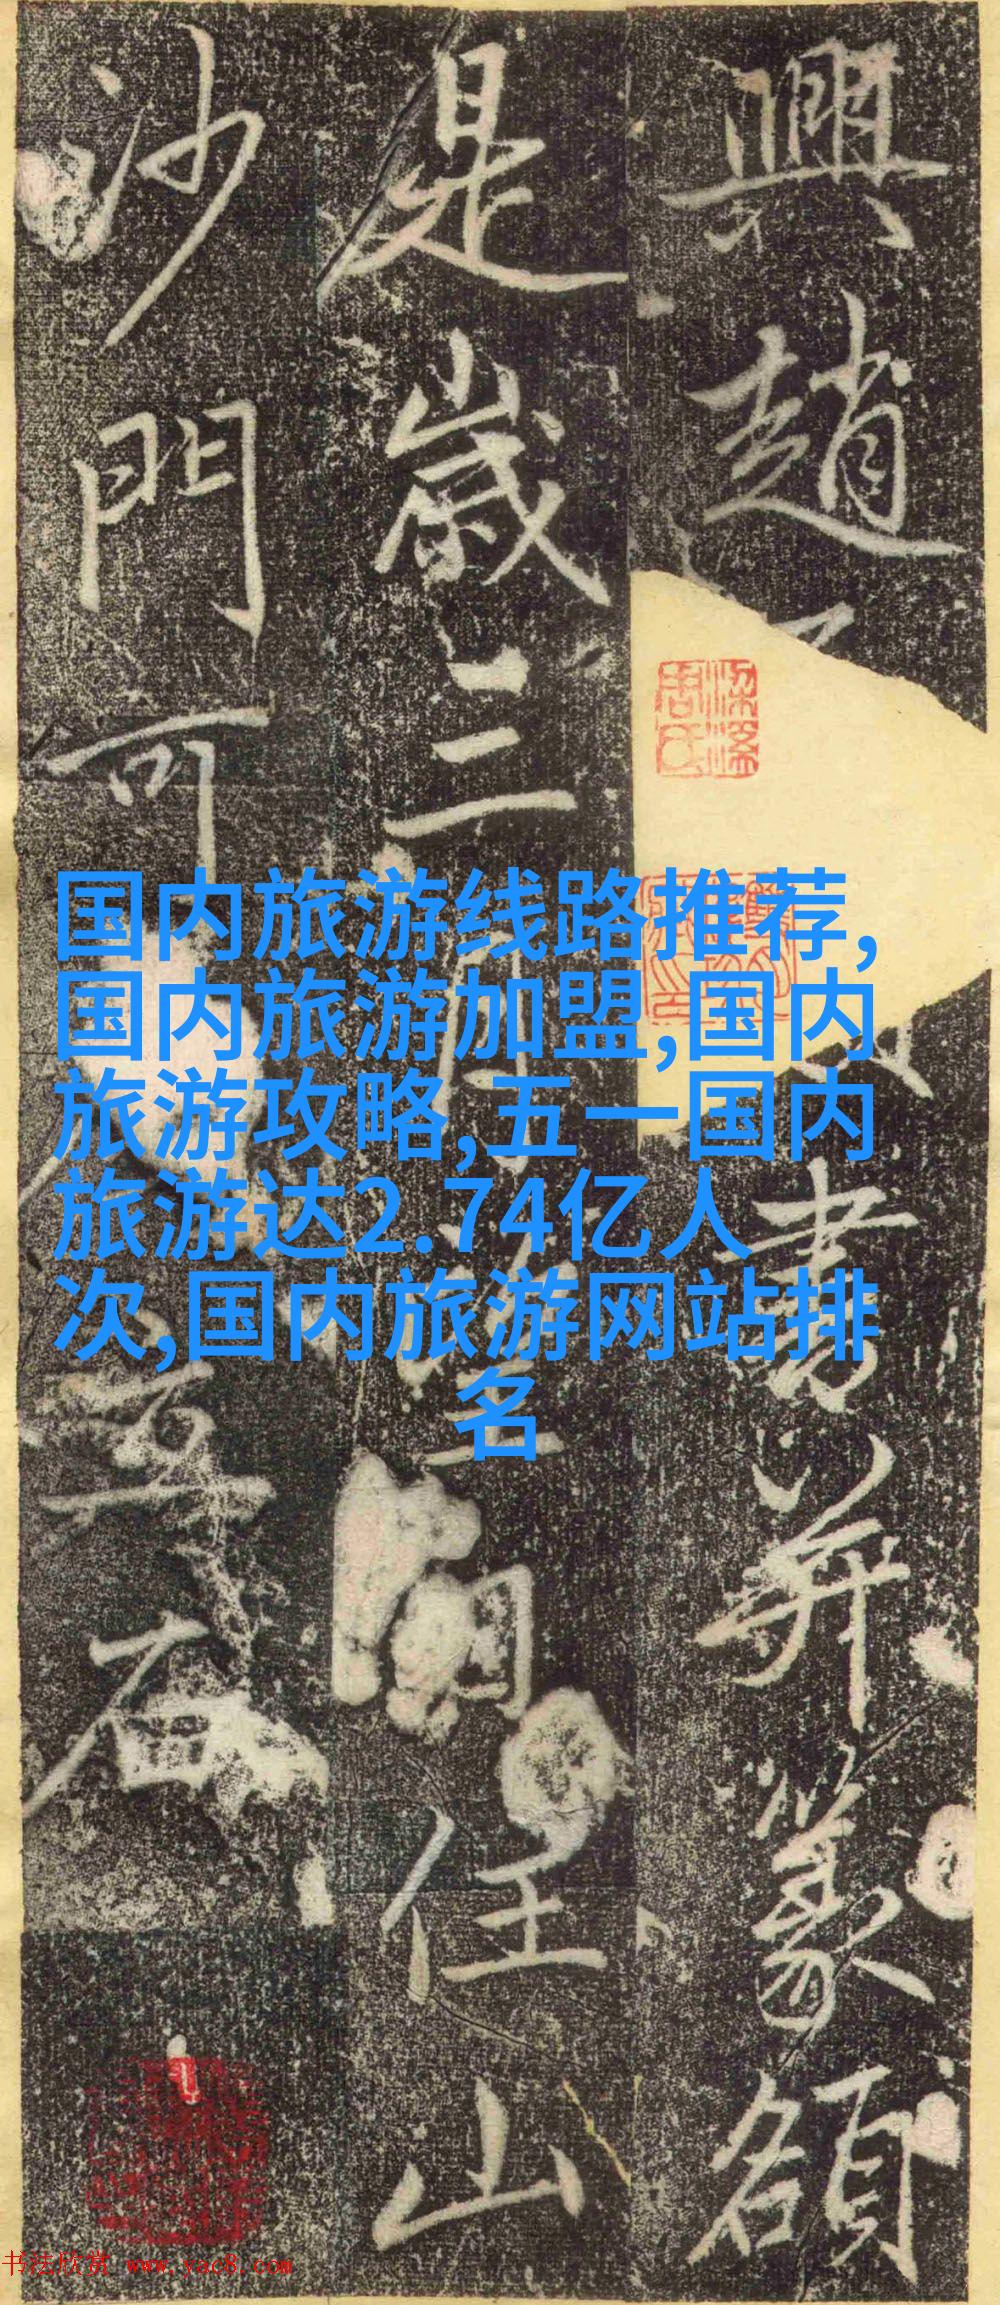 興趙書并篆額
是歲三月住山
沙門可
国内旅游线路推荐,
国内旅游加盟,国内
旅游攻略,五一国内
旅游达2.74亿人
次,国内旅游网站排
名
书法欣赏 www.yac8.com